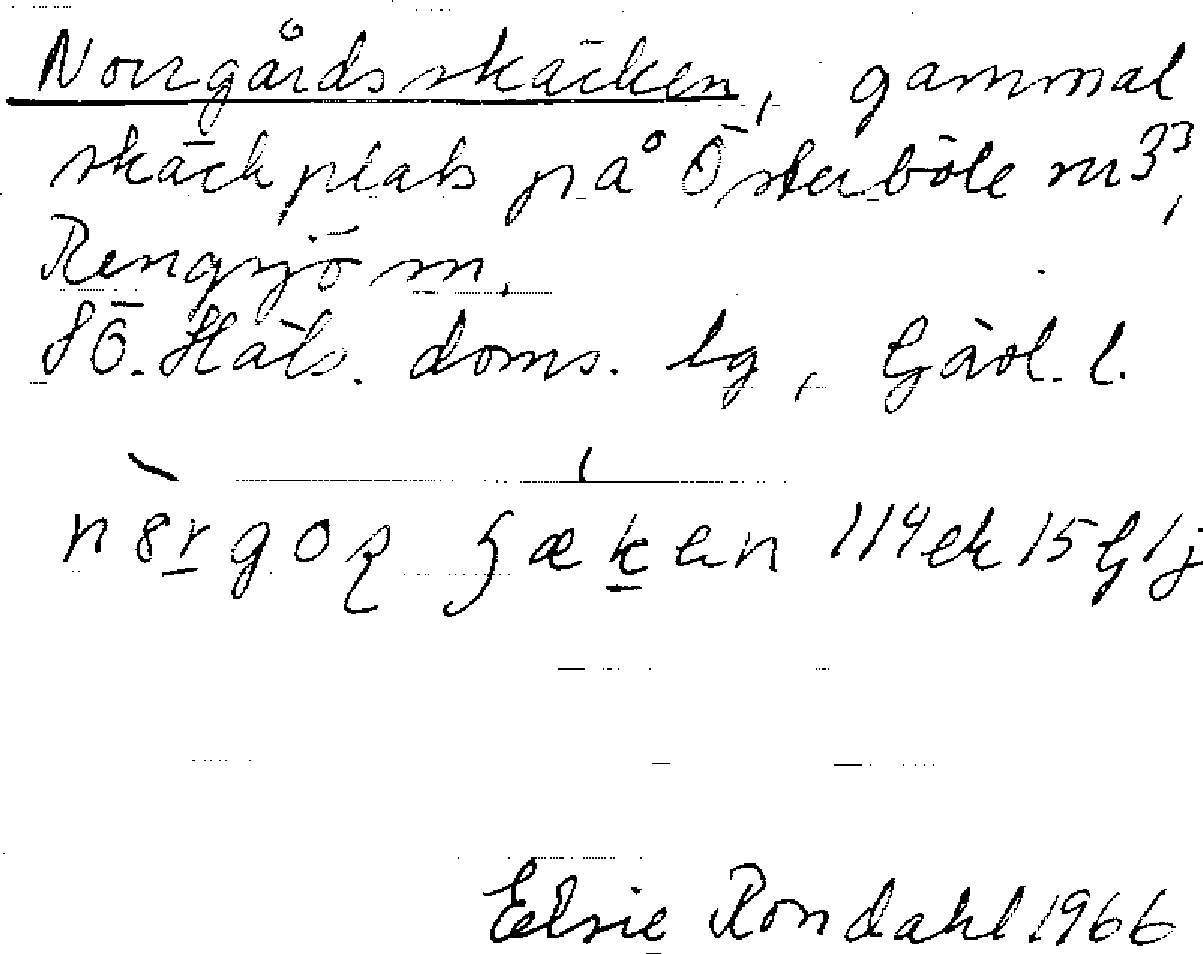 Norrgårdsskäcken, gammal
skäckplats på Österböle nr 3³,
Rengsjö sn,
SÖ. Häls. doms. lg, Gävl. l.
114 ek 15 G 1 j
Elsie Rondahl 1966